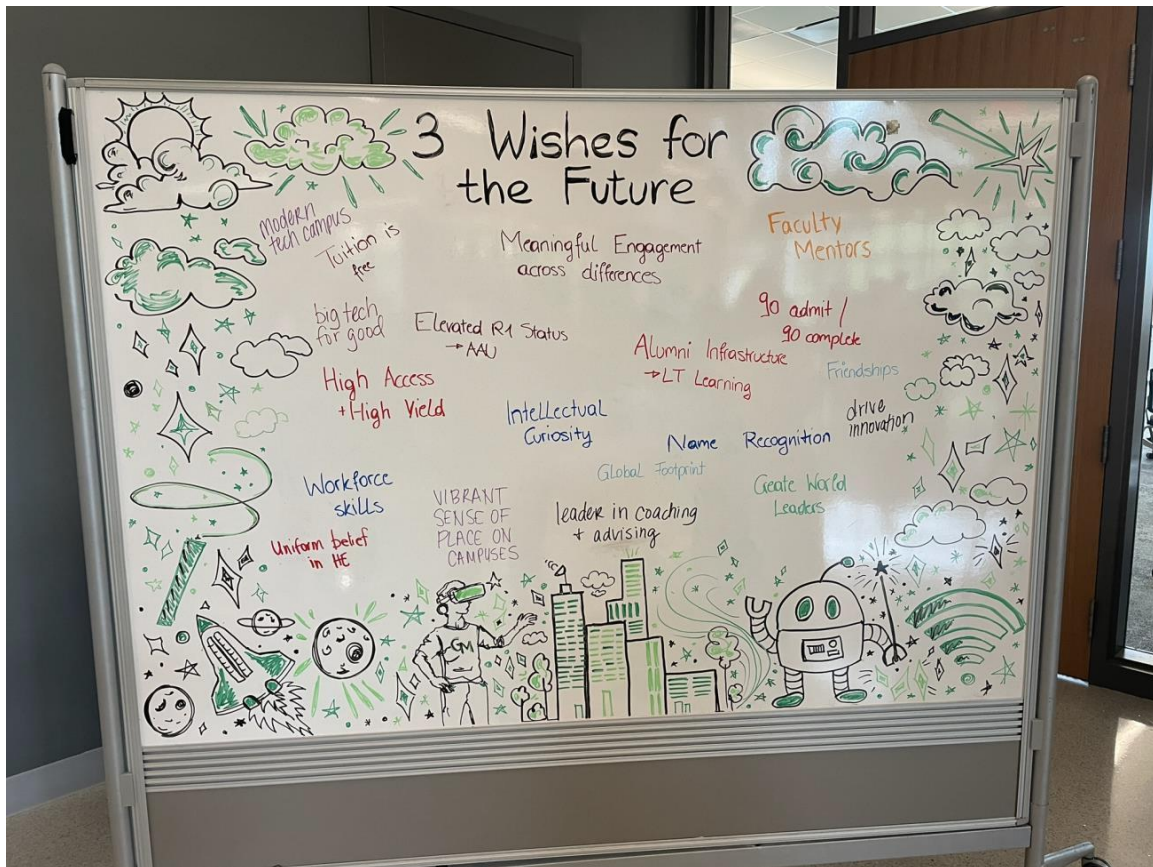 3 Wishes for
the Future
modern
tech campus
Tuition is
free
Meaningful Engagement
across differences
Faculty
Mentors
big tech
for good
Elevated R1 Status
→ AAU
90 admit /
90 complete
Alumni Infrastructure
→ LT Learning
Friendships
High Access
+ High Yield
Intellectual
Curiosity
drive
innovation
Name Recognition
Global Footprint
Workforce
skills
VIBRANT
SENSE OF
PLACE ON
CAMPUSES
leader in coaching
+ advising
Create World
Leaders
Uniform belief
in HE
GM